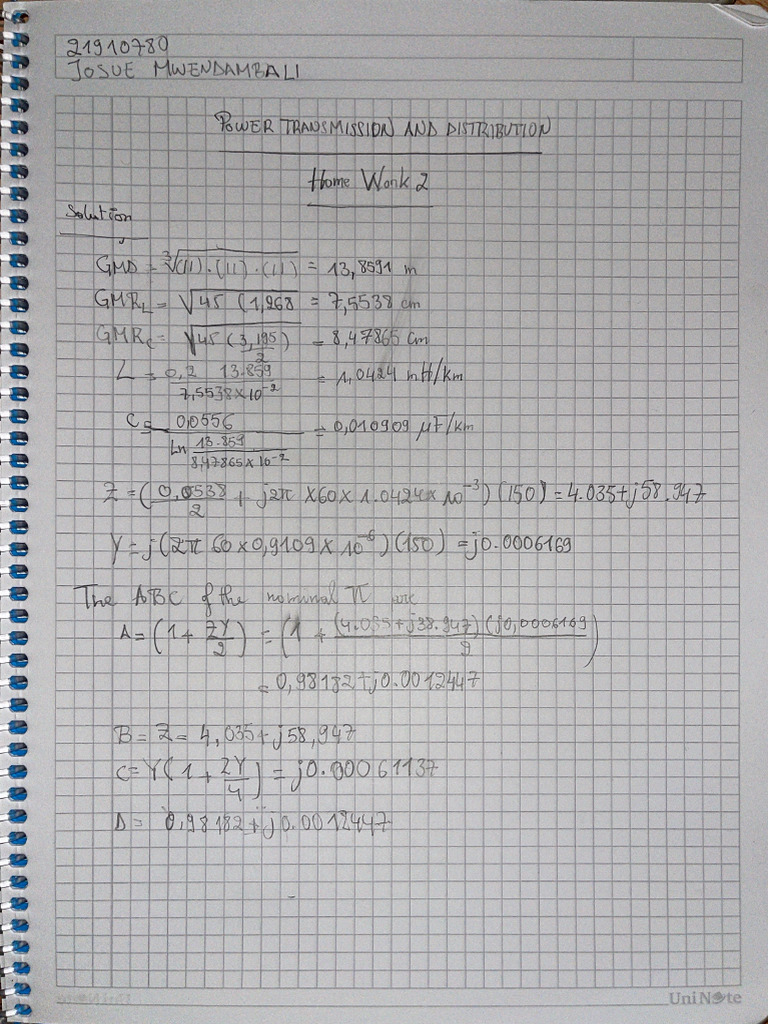 21910789
JOSUE MWENDAMBALI
POWER TRANSMISSION AND DISTRIBUTION
Home Work 2
Solution
GMD = ∛(11)·(11)·(11) = 13,8591 m
GMR_L = √45 (1,268 = 7,5538 cm
GMR_C = √45 (3,195/2) = 8,47865 Cm
L = 0,2 13.859 / 7,5538×10⁻² = 1.0424 mH/km
C = 0,0556 / Ln 13.859/8,47865×10⁻² = 0,010909 µF/km
Z = (0,0538/2 + j2π ×60× 1.0424× 10⁻³) (150) = 4.035+j58.947
Y = j(2π 60×0,9109×10⁻⁶) (150) = j0.0006169
The ABC of the nominal π are
A = (1 + ZY/2) = (1 + (4.035+j38.947) (j0,0006169)/2)
= 0,98182+j0.0012447
B = Z = 4,035+j58,947
C = Y(1 + ZY/4) = j0.00061137
D = 0,98182+j0.0012447
UniNote